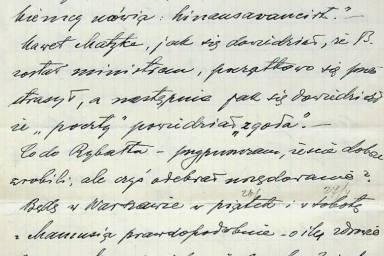 niemcy mówią: hinausavanciert."
Nawet Matyka, jak się dowiedział, że B.
został ministrem, początkowo się
straszył, a następnie jak się dowiedział
że „poczty" powiedział „zgoda".
Co do Rybałta - przypuszczam, żeście dobrze
zrobili, ale czyś odebrał
Będę w Warszawie w piątek i w sobotę
- Mamusia prawdopodobnie - o ile zdrowie